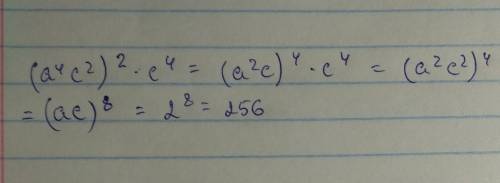 (a⁴c²)² · c⁴ = (a²c)⁴ · c⁴ = (a²c²)⁴
= (ac)⁸ = 2⁸ = 256